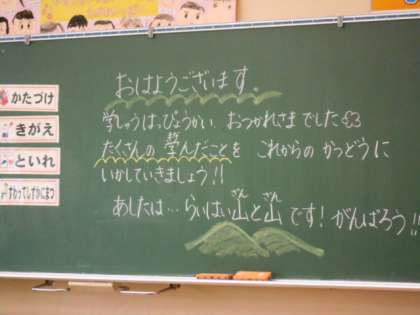 おはようございます。
学しゅうはっぴょうかい おつかれさまでした
たくさんの 学んだことを これからの かつどうに
いかしていきましょう!!
あしたは…らいはい山と山です!がんばろう!!
ざん ざん
かたづけ
きがえ
といれ
すわってしずかにまつ